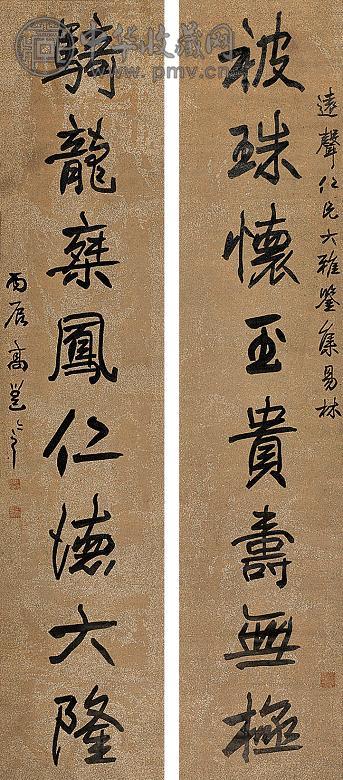 中华收藏网
www.pmv.cn.com
遠聲仁兄大雅鑒集易林
被珠懷玉貴壽無極
騎龍乘鳳仁德大隆
丙辰高邕